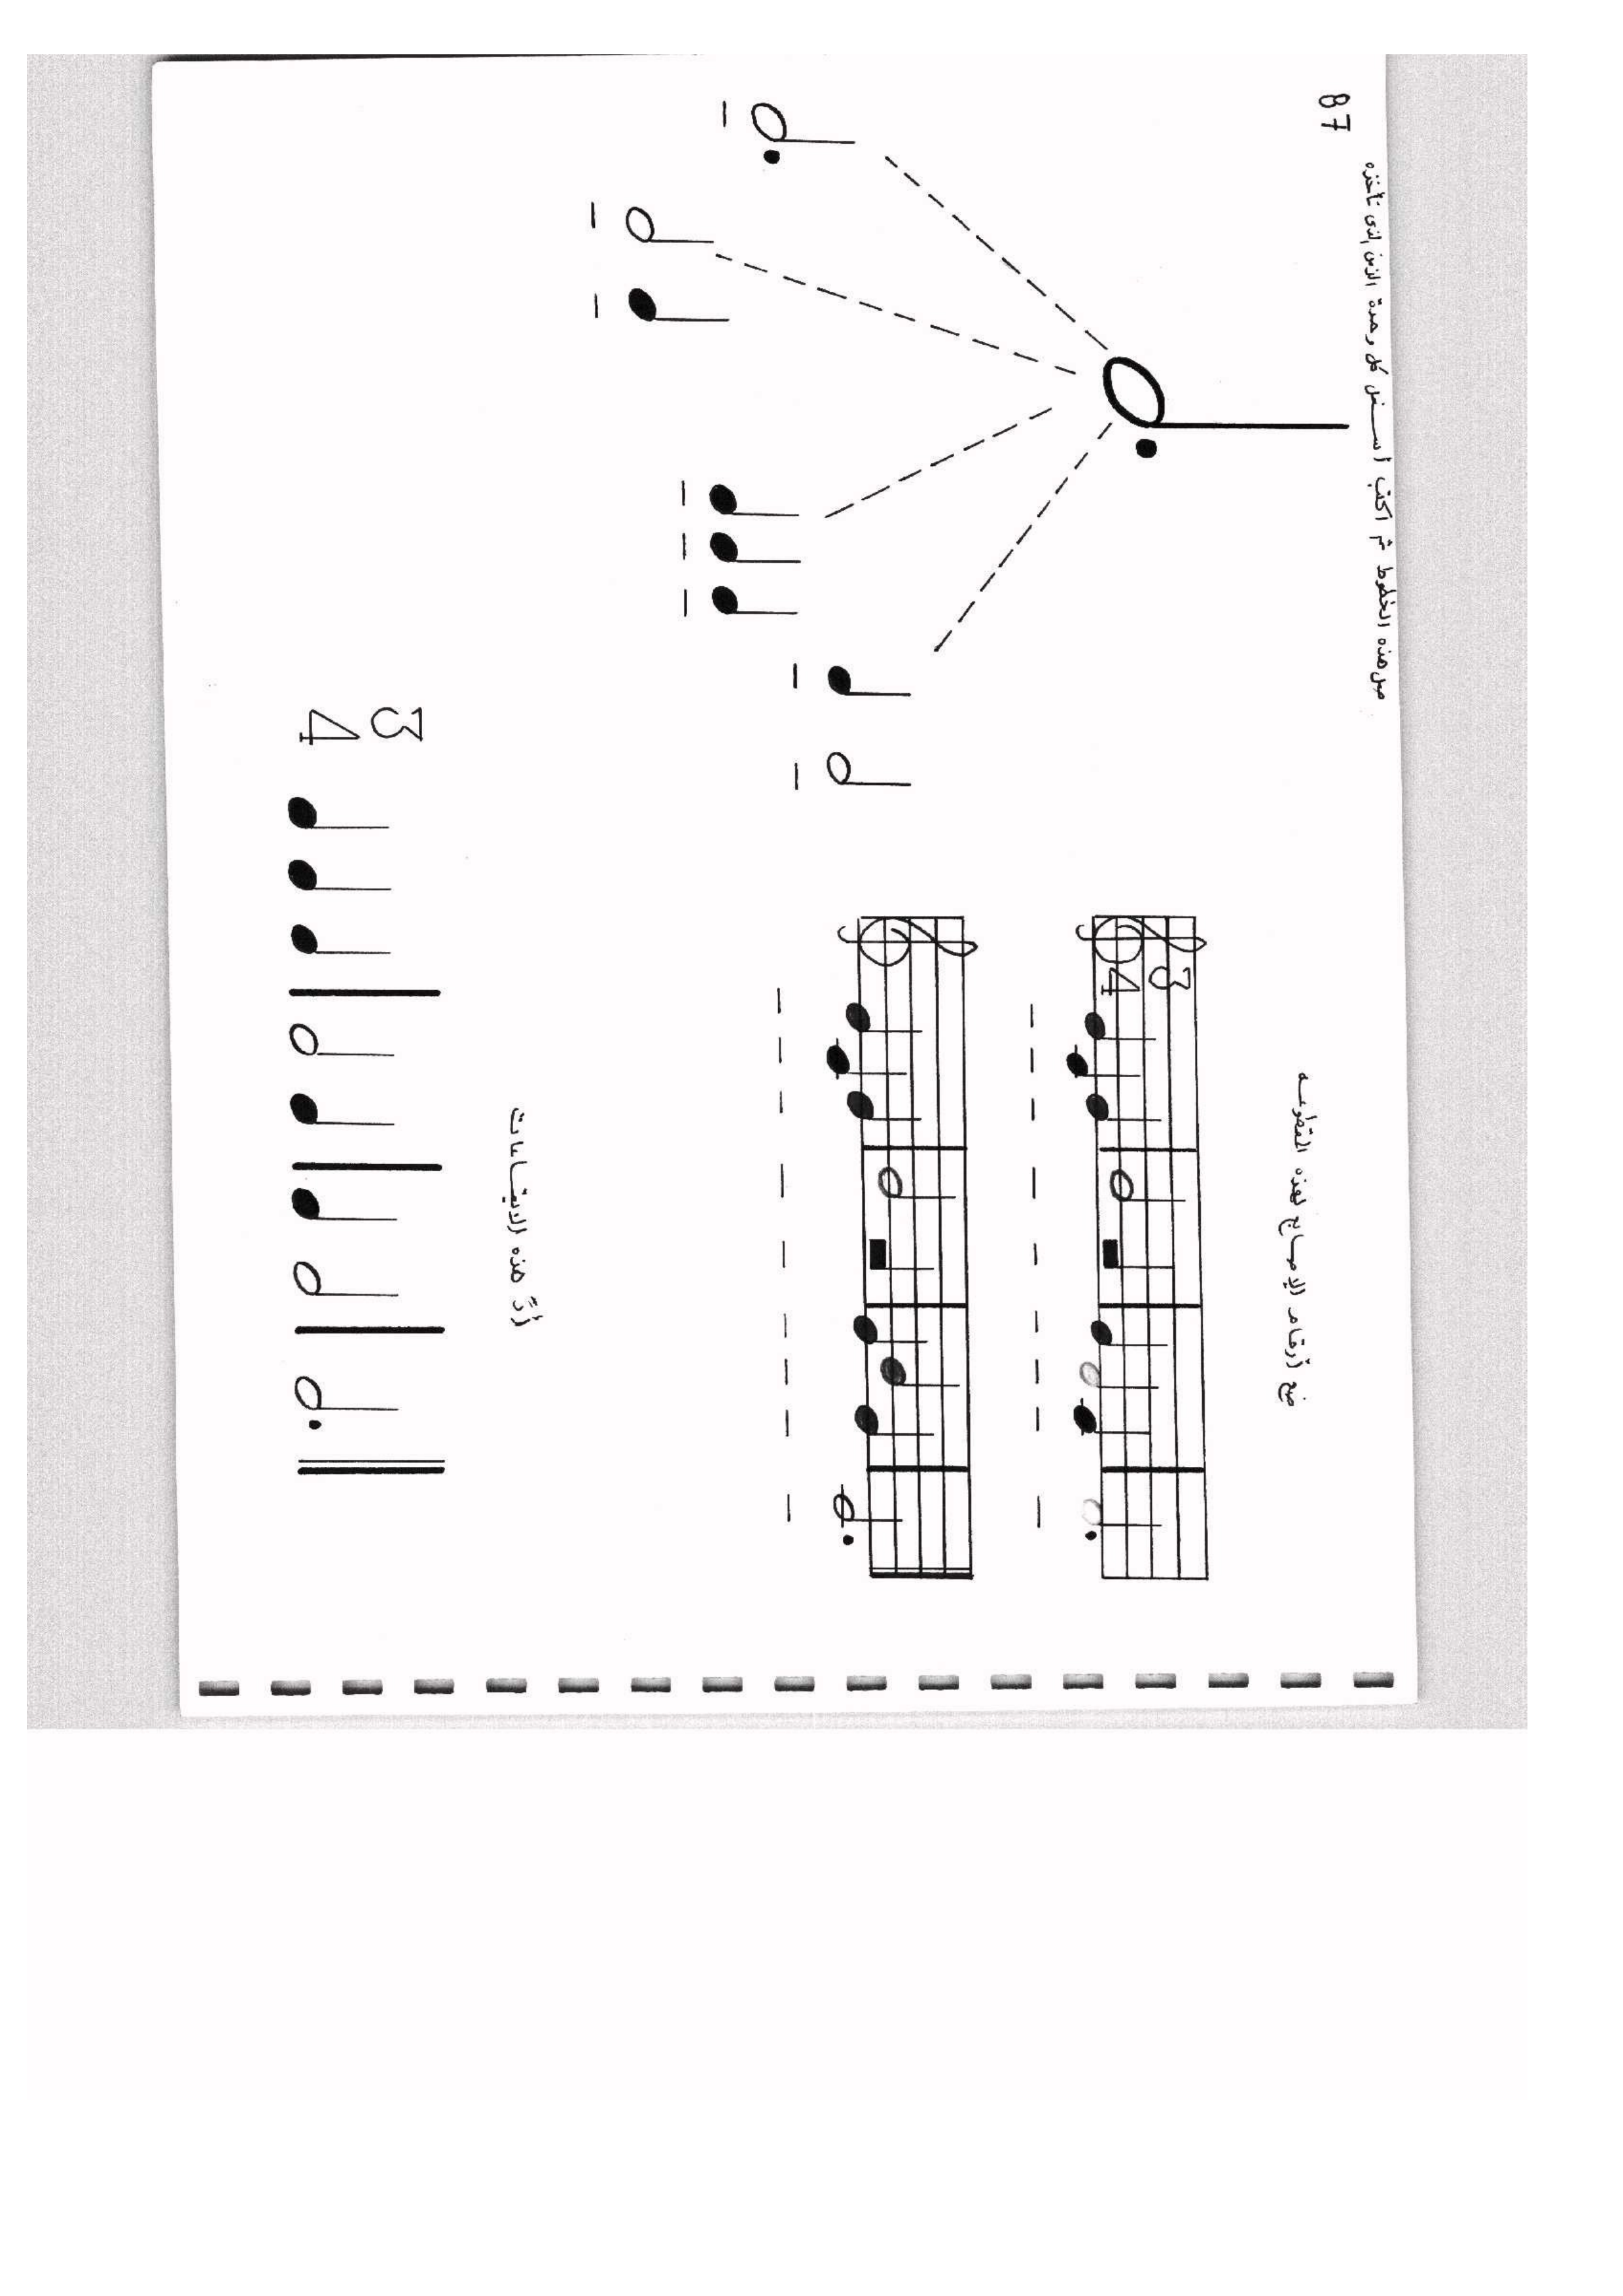 87
صل هذه الخطوط ثم اكتب أسفل كل وحدة الزمن الذى تأخذه
ضع أرقام الإصابع لهذه المقطوعه
3
4
أدِّ هذه الايقاعات
3
4